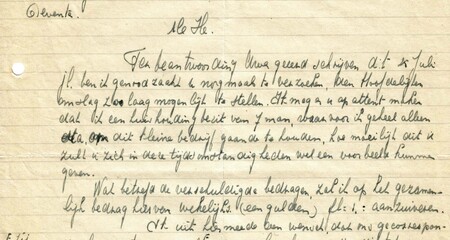 Deventer.
M. H.
Ter beantwoording Uwa geeerd schrijven d.t. 8 Juli
jl. ben ik genoodzaakt U nogmaals te verzoeken, den Hoofdelijken
omslag zoo laag mogenlijk te stellen, Ik mag er u op attent maken
dat ik een huishouding bezit van 7 man, waarvoor ik geheel alleen
sta, om dit kleine bedrijf gaande te houden, hoe moeilijk dit is
zult u zich in deze tijdsomstandigheden wel een voorbeeld kunnen
geven.
Wat betreft de verschuldigde bedragen, zal ik op het gezamen-
lijk bedrag hiervan wekelijks (een gulden) fl: 1: aanzuiveren.
Ik uit hiermede een wensch, dat mijn